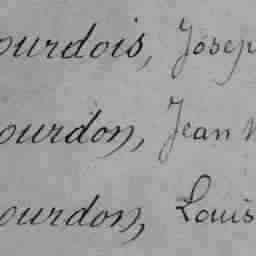 ourdois, Josep
ourdon, Jean
ourdon, Louis